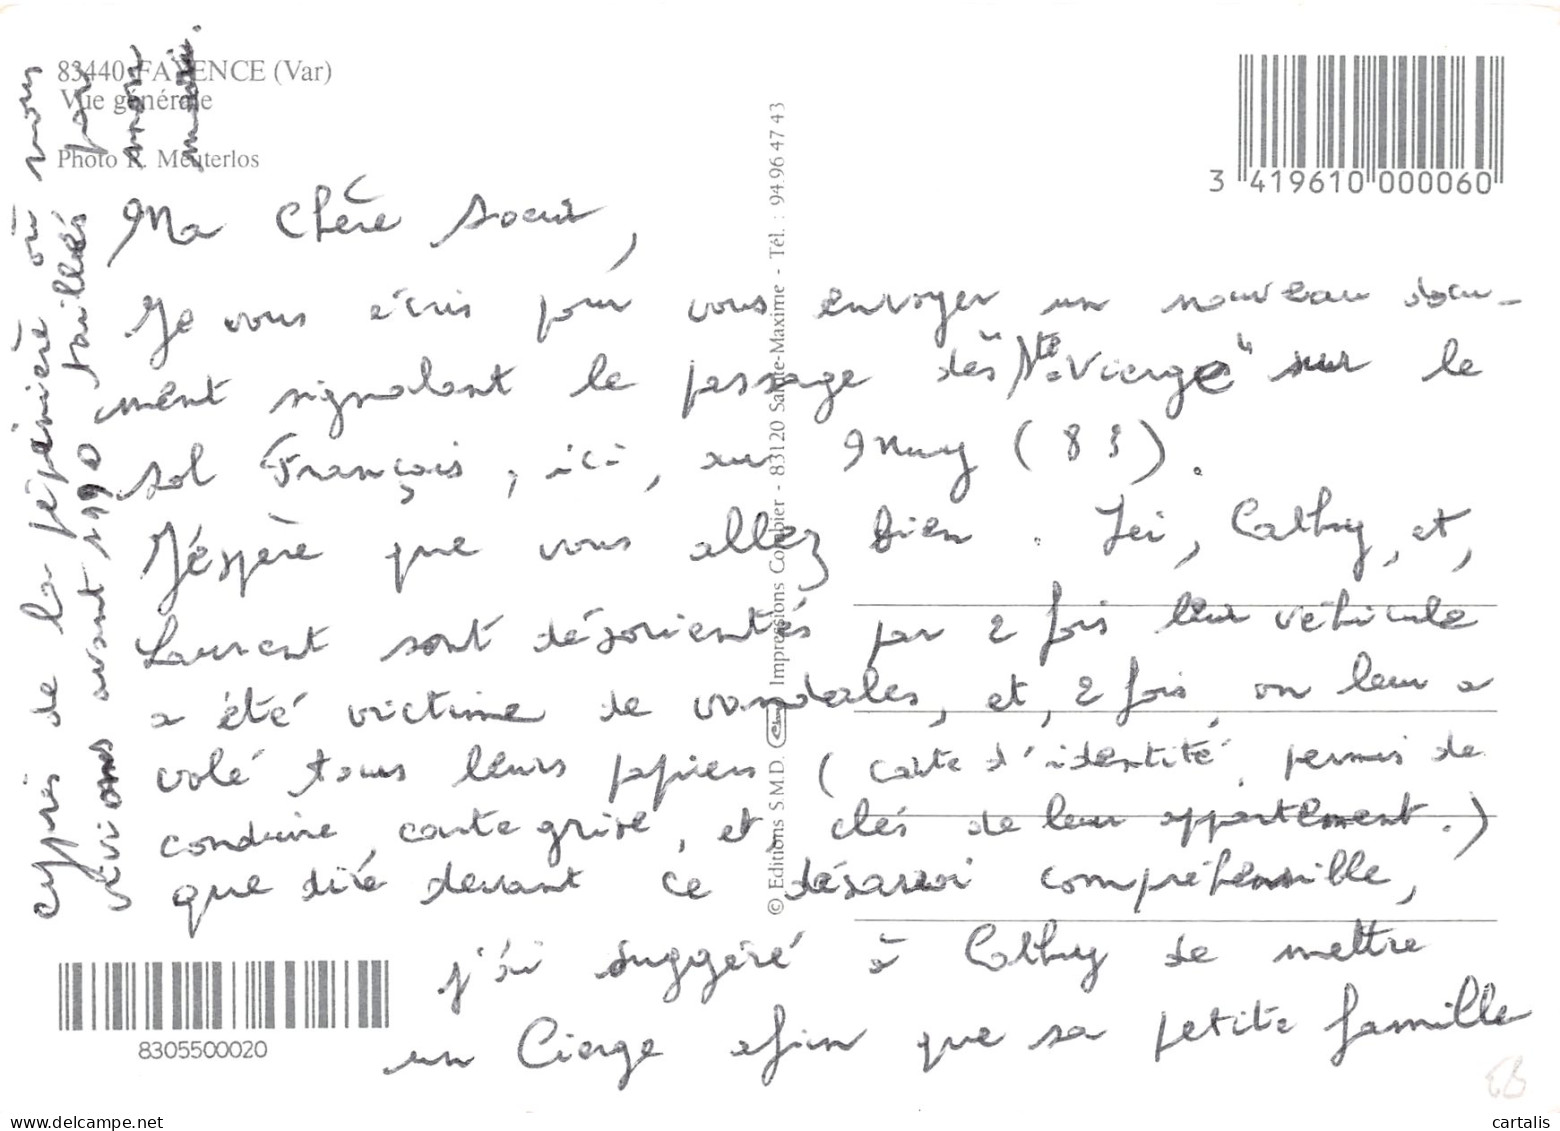 83440 FAYENCE (Var)
Vue générale
Photo R. Meuterlos
3 419610 000060
Ma chère soeur,
Je vous écris pour vous envoyer un nouveau docu-
ment signalant le passage de la " Ste Vierge " sur le
sol Français, ici, au Muy (83).
J'éspère que vous allez bien. Ici, Cathy, et,
Laurent sont désorientés par 2 fois leur véhicule
a été victime de vandales, et, 2 fois, on leur a
volé tous leurs papiers (carte d'identité, permis de
conduire, carte grise, et, clés de leur appartement.)
que dire devant ce désarroi compréhensible,
j'ai suggéré à Cathy de mettre
un Cierge afin que sa petite famille
cyprés de la pépinière où nous
vivions avant 1990 taillés
par
mon
mari.
© Editions S.M.D. Impressions Combier - 83120 Sainte-Maxime - Tél. : 94 96 47 43
8305500020
EB
www.delcampe.net
cartalis